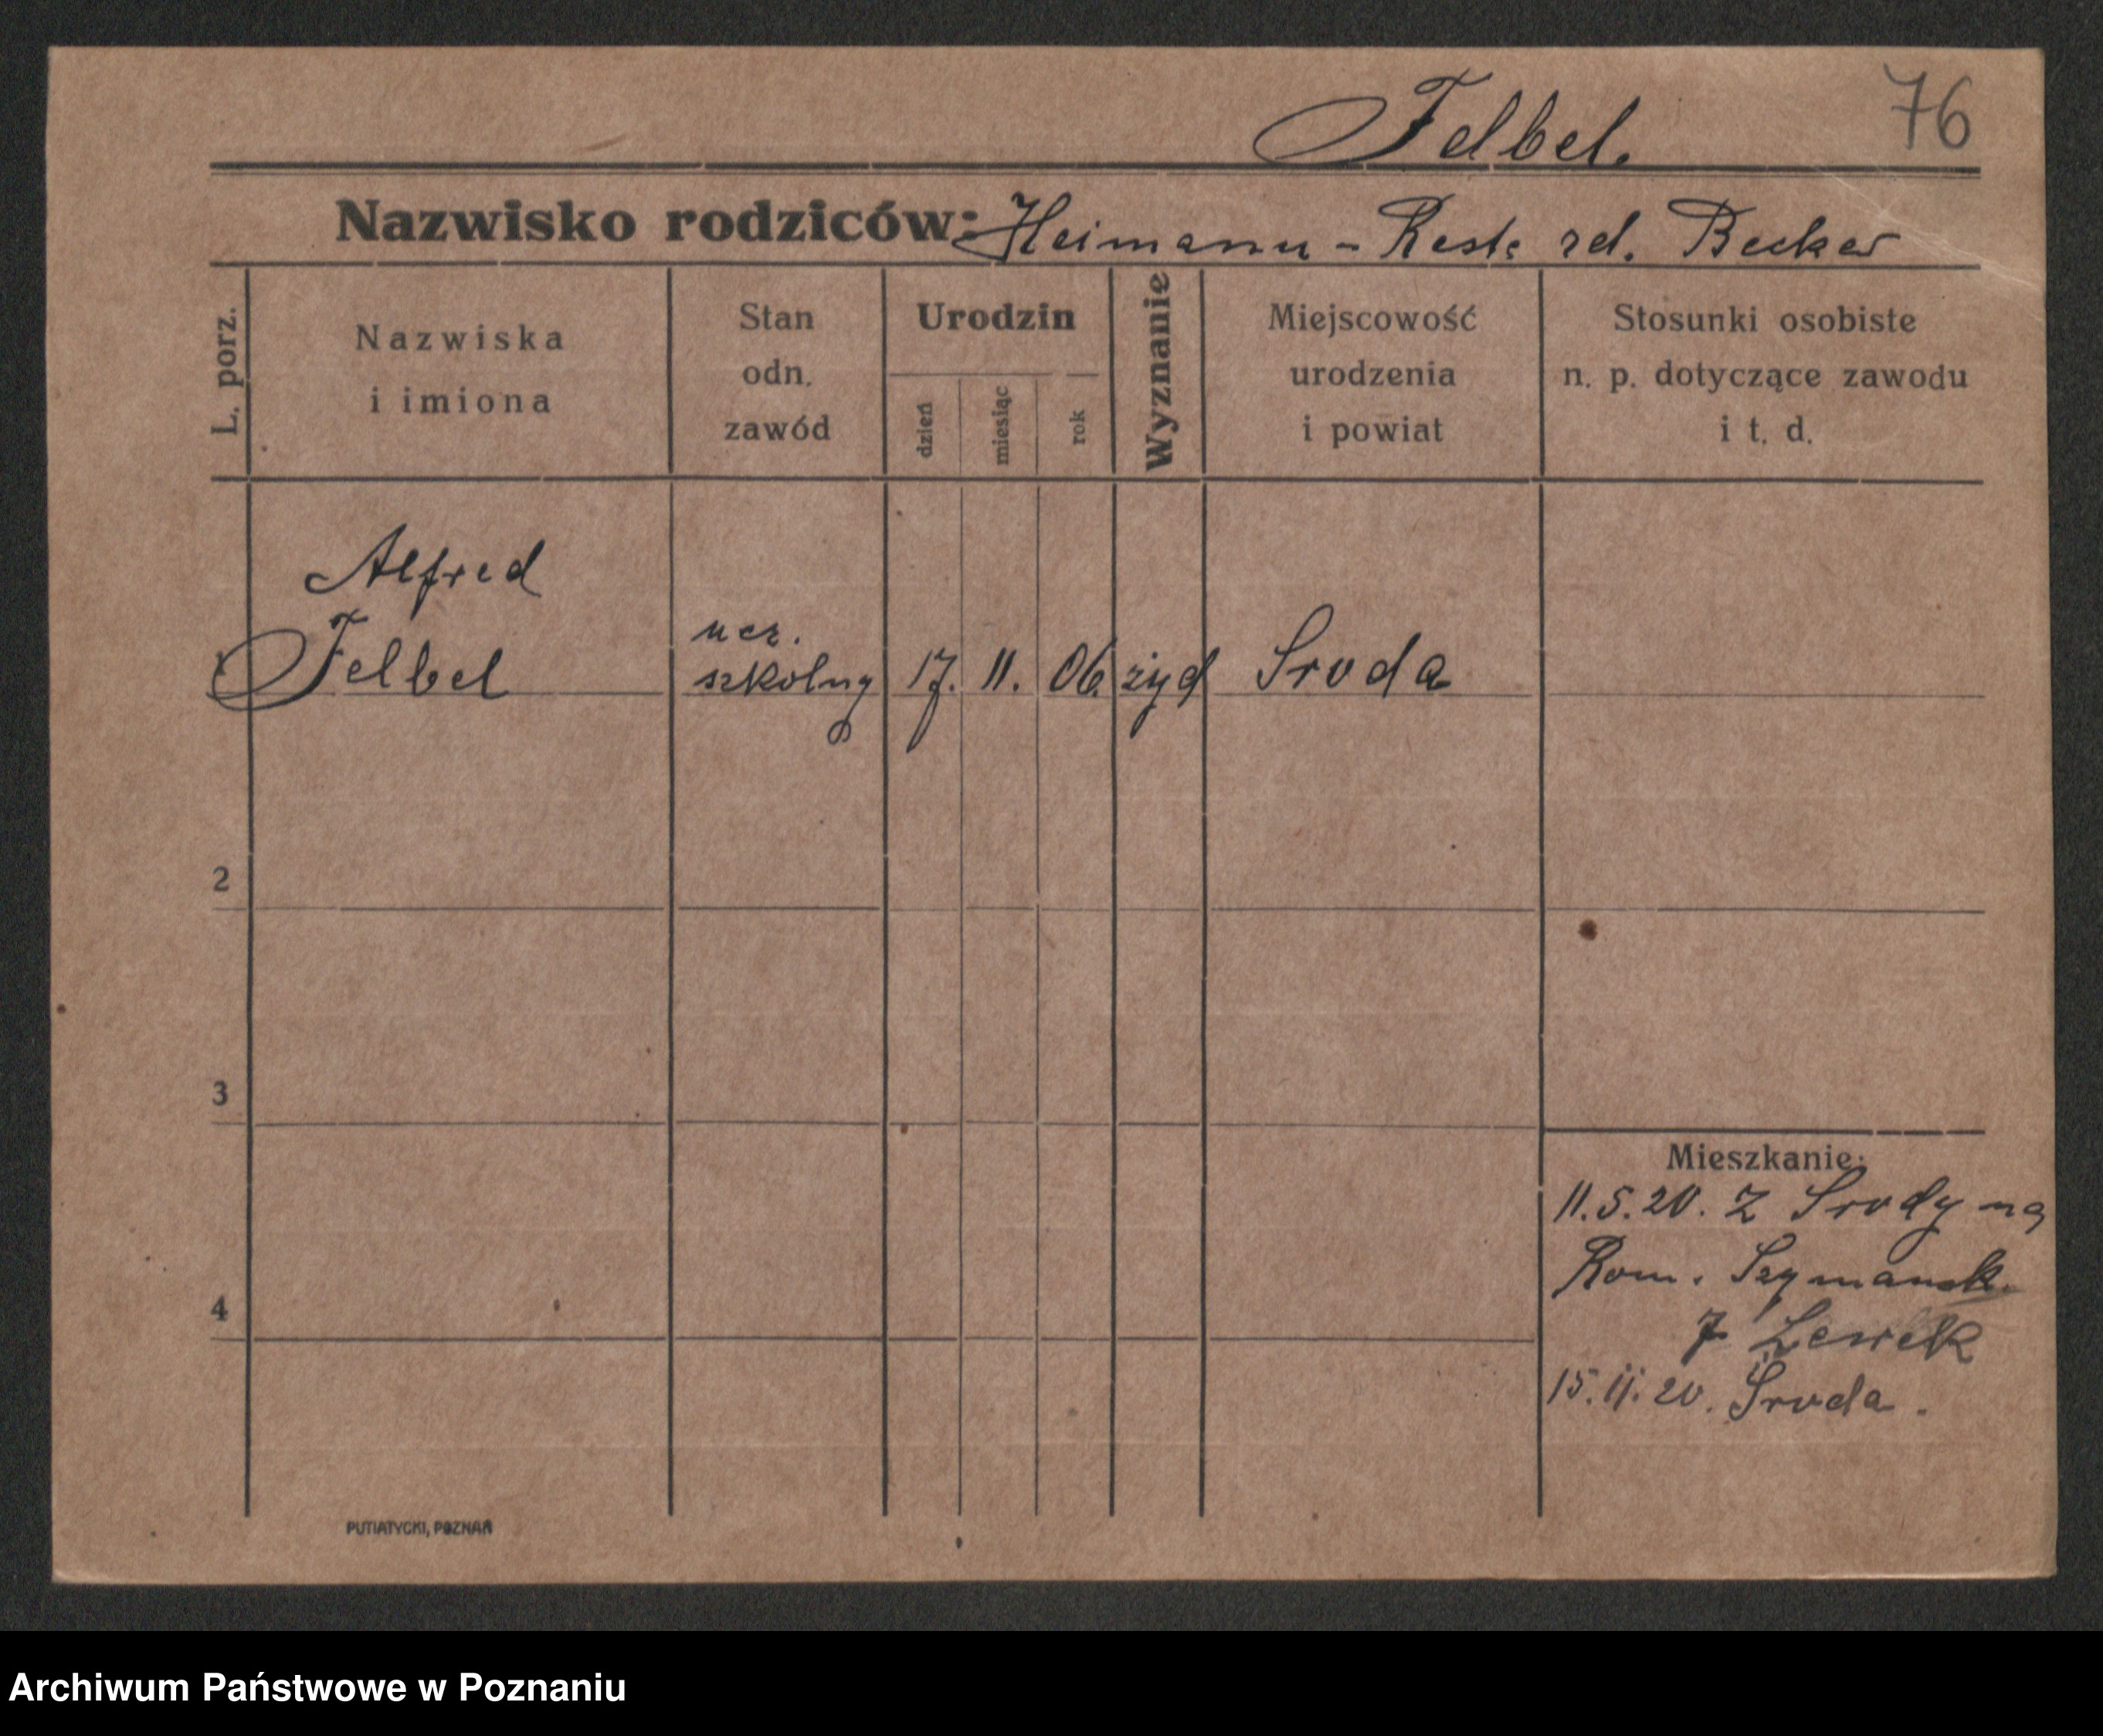 76
Felbel.
Nazwisko rodziców: Heimann - Rest: rd. Becker
L. porz.
Nazwiska
i imiona
Stan
odn.
zawód
Urodzin
dzień
miesiąc
rok
Wyznanie
Miejscowość
urodzenia
i powiat
Stosunki osobiste
n. p. dotyczące zawodu
i t. d.
Alfred
1 Felbel
ucz.
szkolny
17. 11. 06. żyd Sroda
2
3
4
Mieszkanie:
11.5.20. Z Srody na
Rom. Szymansk.
7 Lewek
15.11.20. Sroda.
PUTIATYCKI, POZNAŃ
Archiwum Państwowe w Poznaniu